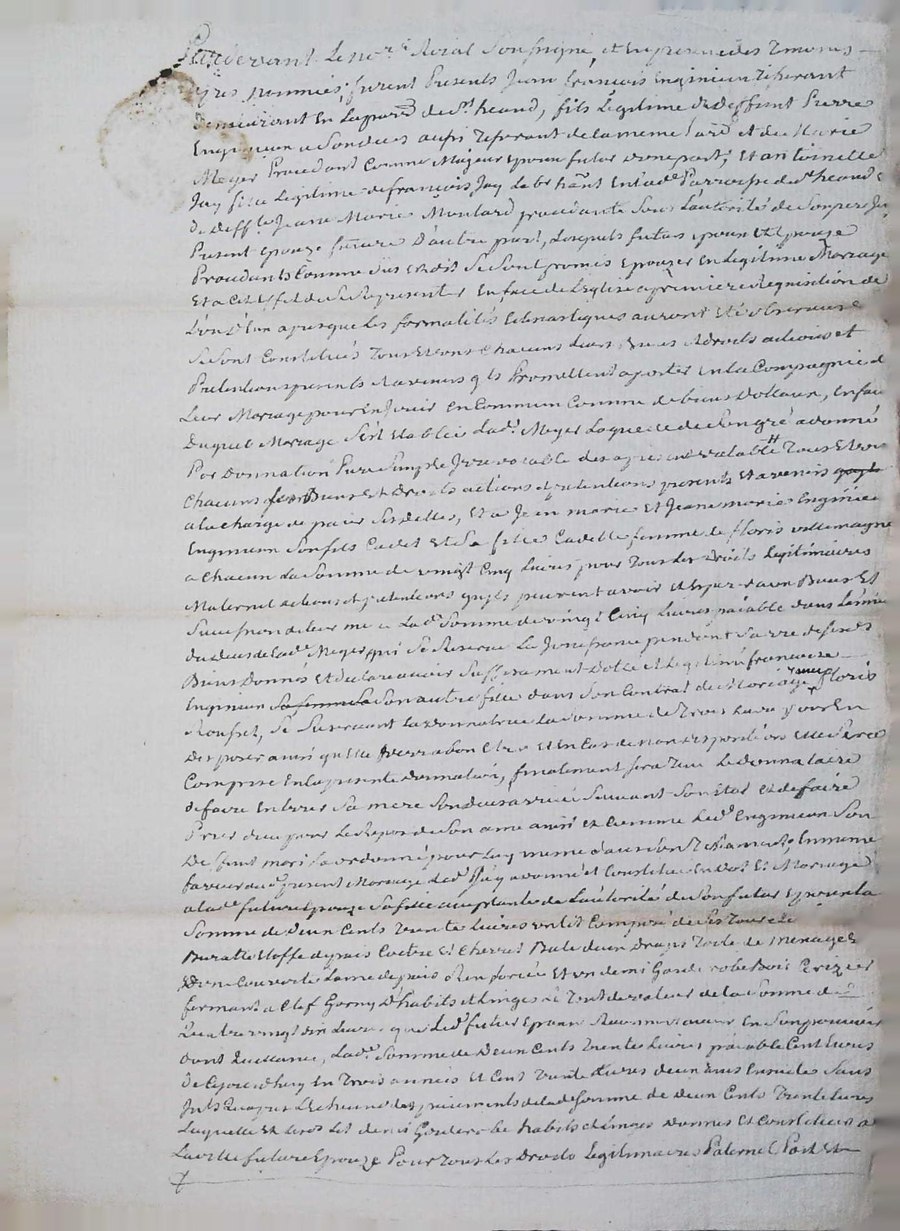 Pardevant Le no.re Roial Soussigné et En presence des Temoins
apres nommés, furent Presents Jean François Enginieur Tisserant
Demeurant En La parr.e de St heand, fils Legitime de deffunt Pierre
Enginieur a Son Vivant aussi Tisserant de la meme Parr.e et de Marie
Meyer Procedant Comme Majeur Epoux futur d'une part, Et antoinette
Jay fille Legitime de françois Jay Lab. habitant En lad. Parroisse de St heand &
de deff.te Jeane Marie Moulard procedante Sous L'autorité de Son pere Jcy
Present Epouze future D'autre part, Lesquels futurs Epoux Et Epouze
Procedants Comme dit est ont Se Sont promis Epouzer En Legitime Mariage
Et a Cet Effet de Se Representer En face de L'Eglise a premiere Requisition de
L'un D'Eux apres que Les formalités Eclesiastiques auront Eté observees
Se Sont Constitués Tous Et Uns Chacuns Leurs Biens Droits actions et
Pretentions presents et avenirs q.ls Promettent aporter En La Compagnie de
Leur Mariage pour En Jouir En Commun Comme de biens Dottaux, En faveur
Duquel Mariage S'est Etablie Lad.e Meyer Laquelle de Son gré a donné
Par Donnation Pure Simple Irrevocable des apresent valable Tous Et Uns
Chacuns Ses Biens Et Droits actions pretentions presents Et avenirs
a la charge de paier Ses dettes, Et a Jean marie Et Jeane marie Enginieur
Enginieur Son fils Cadet Et Sa fille Cadette femme de floris vallemagne
a Chacun La Somme de vingt Cinq Livres pour Tous Les Droits Legitimaires
Maternel actions et pretentions qu'ils peuvent avoir Et Esperer aux Biens Et
Succession de leur mere Lad. Somme de vingt Cinq Livres paiable dans L'année
du Deces de Lad.e Meyer qui Se Reserve La Jouissance pendant Sa vie desdits
Biens Donnés Et declare avoir Suffisament Dotté et Legitimé françoise
Enginieur Son autre fille dans Son Contrat de Mariage avec floris
Se Reservant La donnatrice La Somme de Trois Livres pour En
Disposer ainsi qu'Elle verra bon Etre Et En Cas de non disposition Elle Sera
Comprise En La presente donnation, finalement Sera Tenu Le donnataire
de faire Enterer Sa mere Son deces arrivé Suivant Son Etat Et de faire
Prier dieu pour Le Repos de Son ame ainsi Et Comme Led. Enginieur Son
Defunt mari L'a ordonné pour Luy meme dans Son Testament, En meme
faveur du present Mariage Led. Jay a donné et Constitué En dot Et Mariage
a lad.e future Epouze Sa fille acceptante de L'autorité de Son futur Epoux La
Somme de deux Cents Trente Livres un lit Composé de Ses Tours de
Buratte Etoffe du pais Coetre Et Chevet Bale deux Draps Toile de menage &
D'une Couverte Laine du pais Et un demi Garde robe Bois Cerizier
fermant a Clef Garny D'habits et Linges Le Tout de valeur de la Somme de
Quatre vingt dix Livres que Led. futur Epoux Reconnoit avoir En Son pouvoir
Dont Quittance, Lad.e Somme de Deux Cents Trente Livres paiable Cent Livres
de Cejourdhuy En Trois années Et Cent Trente Livres deux ans Ensuite Sans
Jnts Qu'apres L'echeance des paiements de lad.e Somme de deux Cents Trente Livres
Laquelle Et Led. Lit demi Garderobe habits et Linges Donnés Et Constitués a
Laditte future Epouze Pour Tous Les Droits Legitimaires Paternel Part Et